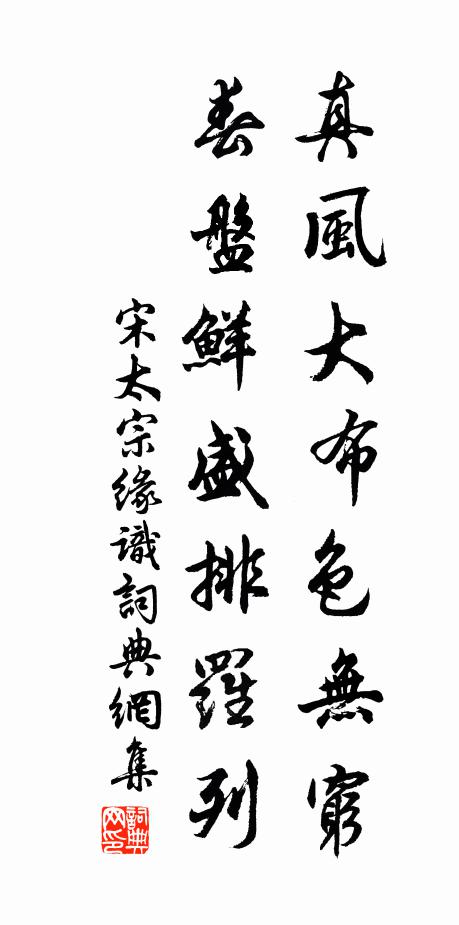 真風大布色無窮
春盤鮮盛排羅列
宋太宗緣識詞典網集
詞典网印